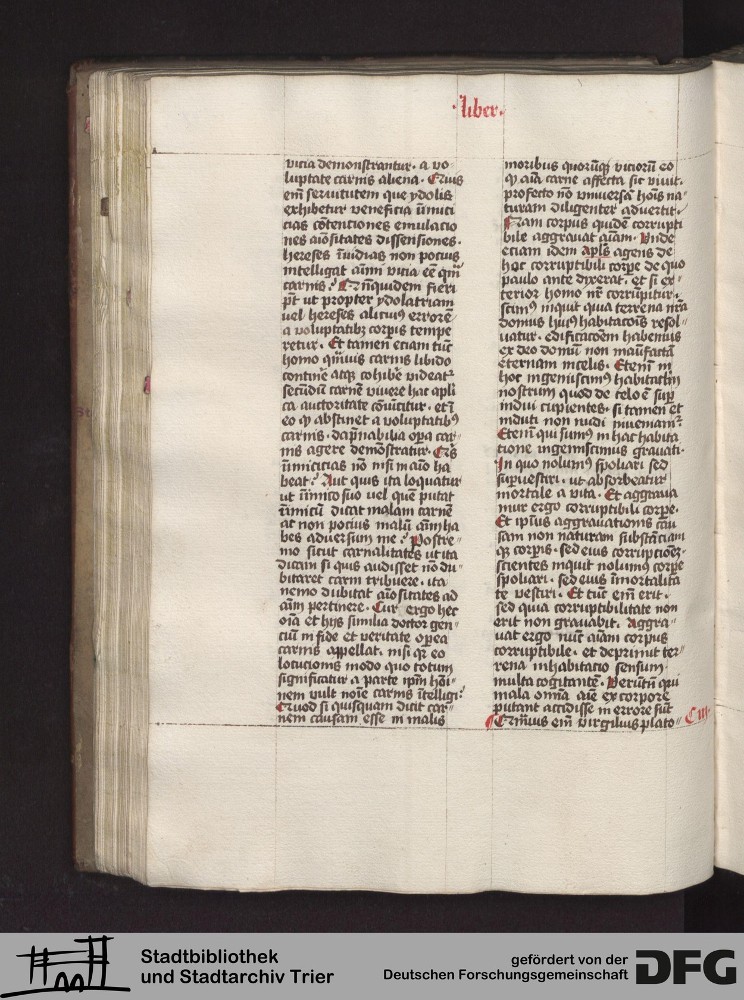 ·liber·
vicia demonstrantur· a vo
luptate carnis aliena· Quis
em̄ seruitutem que ydolis
exhibetur veneficia īnimi
cias cōtenciones emulacio
nes aīositates dissensiones·
hereses īnuidias non pocius
intelligat animi vicia eē qm̄
carnis? Qn̄quidem fieri
pt̄ ut propter ydolatriam
uel hereses alicuius errorē
a voluptatibꝫ corpis tempe
retur· Et tamen eciam tūc
homo qmuis carnis libido
continē atqꝫ cohibē videat᷑
secūdū carnē viuere hac apli
ca auctoritate cōuincitur· et ī
eo ꝙ abstinet a voluptatibꝰ
carnis· dāpnabilia opa car
nis agere demōstratur· Q's
īnimicicias nō nisi in aīo ha
beat? Aut quis ita loquatur
ut īnimico suo uel quē putat
īnimicū dicat malam carnē
at non pocius malū aīm ha
bes aduersum me? Postre
mo sicut carnalitates ut ita
dicam si quis audisset nō du
bitaret carni tribuere· ita
nemo dubitat aīositates ad
aīm pertinere· Cur ergo hec
oīa et hijs similia doctor gen
ciū in fide et veritate opera
carnis appellat· nisi qꝛ eo
locucionis modo quo totum
significatur a parte ipm̄ hoī
nem vult noīe carnis ītelligi?
Quod si quisquam dicit car
nem causam esse in malis
moribus quorūqꝫ vicioꝝ eo
ꝙ aīa carne affecta sic viuit·
profecto nō vniuersā hoīs na
turam diligenter aduertit·
Nam corpus quidē corrupti
bile aggrauat aīam· Vnde
eciam idem apls̄ agens de
hoc corruptibili corpe de quo
paulo ante dixerat· et si ex
terior homo nr̄ corrūpitur·
scimꝰ inquit quia terrena nr̄a
domus huiꝰ habitacōis resol
uatur· edificacōem habemus
ex deo domū non manūfactā
eternam in celis· Etem̄ in
hoc ingemiscimꝰ habitaclm̄
nostrum quod de celo ē sup
indui cupientes· si tamen et
induti non nudi inueniamᷓ·
Etem̄ qui sumꝰ in hac habita
tione ingemiscimus grauati·
In quo nolumꝰ spoliari sed
supuestiri· ut absorbeatur
mortale a vita· Et aggraua
mur ergo corruptibili corpe·
Et ipsius aggrauationis cau
sam non naturam substāciam
qꝫ corpis· sed eius corrupcionē·
scientes inquit nolumꝰ corpe
spoliari· sed eius īmortalita
te vestiri· Et tūc em̄ erit·
sed quia corruptibilitate non
erit non grauabit· Aggra
uat ergo nūc aīam corpus
corruptibile· et deprimit ter
rena inhabitacio sensum
multa cogitantē· Verūtn̄ qui
mala omnia aīe ex corpore
putant accidisse in errore sūt
Quāuis em̄ virgilius plato
C iij·
Stadtbibliothek
und Stadtarchiv Trier
gefördert von der
Deutschen Forschungsgemeinschaft
DFG